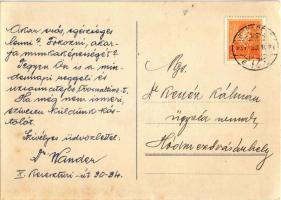 Akar erős, egészséges
lenni? Fokozni, akar-
ja munkaképességét?
Vegyen Ön is a min-
dennapi reggeli és
uzsonna italas Ovomaltine-t.
Ha még nem ismeri,
szívesen küldünk kós-
tolót.
Szíves üdvözlettel:
Dr Wander
X. Keresztúri-út 30-34.
Ngs.
Dr Benén Kálmán
ügyvéd urnak,
Hódmezővásárhely